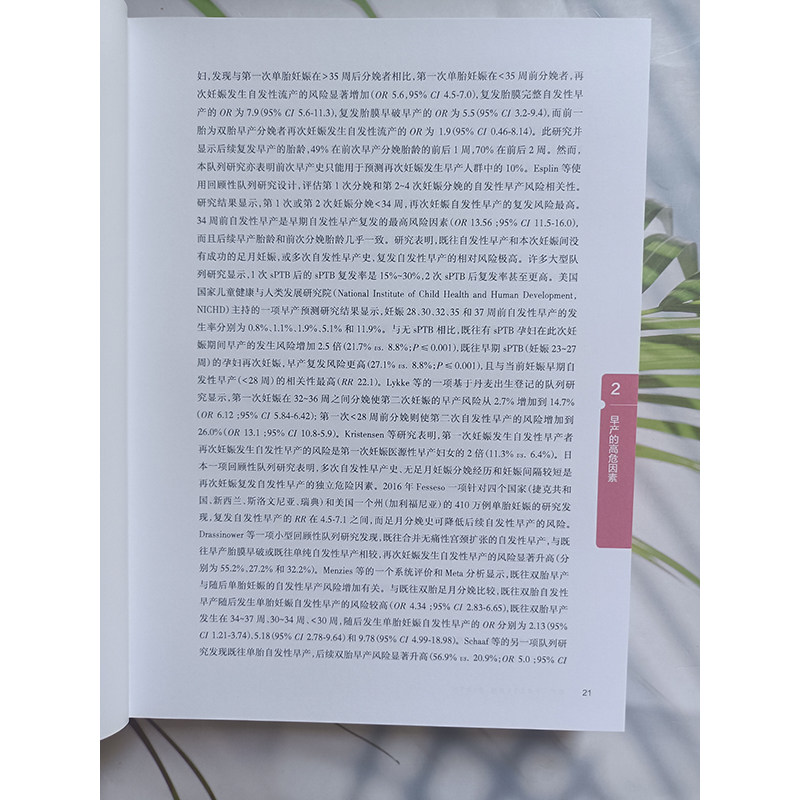 妇，发现与第一次单胎妊娠在>35 周后分娩者相比，第一次单胎妊娠在<35 周前分娩者，再
次妊娠发生自发性流产的风险显著增加(OR 5.6，95% CI 4.5-7.0)，复发胎膜完整自发性早
产的 OR 为 7.9(95% CI 5.6-11.3)，复发胎膜早破早产的 OR 为 5.5(95% CI 3.2-9.4)，而前一
胎为双胎早产分娩者再次妊娠发生自发性流产的 OR 为 1.9(95% CI 0.46-8.14)。此研究并
显示后续复发早产的胎龄，49% 在前次早产分娩胎龄的前后 1 周，70% 在前后 2 周。然而，
本队列研究亦表明前次早产史只能用于预测再次妊娠发生早产人群中的 10%。Esplin 等使
用回顾性队列研究设计，评估第 1 次分娩和第 2~4 次妊娠分娩的自发性早产风险相关性。
研究结果显示，第 1 次或第 2 次妊娠分娩<34 周，再次妊娠自发性早产的复发风险最高。
34 周前自发性早产是早期自发性早产复发的最高风险因素(OR 13.56；95% CI 11.5-16.0)，
而且后续早产胎龄和前次分娩胎龄几乎一致。研究表明，既往自发性早产和本次妊娠间没
有成功的足月妊娠，或多次自发性早产史，复发自发性早产的相对风险极高。许多大型队
列研究显示，1 次 sPTB 后的 sPTB 复发率是 15%~30%，2 次 sPTB 后复发率甚至更高。美国
国家儿童健康与人类发展研究院(National Institute of Child Health and Human Development，
NICHD)主持的一项早产预测研究结果显示，妊娠 28、30、32、35 和 37 周前自发性早产的发
生率分别为 0.8%、1.1%、1.9%、5.1% 和 11.9%。与无 sPTB 相比，既往有 sPTB 孕妇在此次妊
娠期间早产的发生风险增加 2.5 倍(21.7% vs. 8.8%；P≤0.001)，既往早期 sPTB(妊娠 23~27
周)的孕妇再次妊娠，早产复发风险更高(27.1% vs. 8.8%；P≤0.001)，且与当前妊娠早期自
发性早产(<28 周)的相关性最高(RR 22.1)。Lykke 等的一项基于丹麦出生登记的队列研
究显示，第一次妊娠在 32~36 周之间分娩使第二次妊娠的早产风险从 2.7% 增加到 14.7%
(OR 6.12；95% CI 5.84-6.42)；第一次<28 周前分娩则使第二次自发性早产的风险增加到
26.0%(OR 13.1；95% CI 10.8-5.9)。Kristensen 等研究表明，第一次妊娠发生自发性早产者
再次妊娠发生自发性早产的风险是第一次妊娠医源性早产妇女的 2 倍(11.3% vs. 6.4%)。日
本一项回顾性队列研究表明，多次自发性早产史、无足月妊娠分娩经历和妊娠间隔较短是
再次妊娠复发自发性早产的独立危险因素。2016 年 Fesseso 一项针对四个国家(捷克共和
国、新西兰、斯洛文尼亚、瑞典)和美国一个州(加利福尼亚)的 410 万例单胎妊娠的研究发
现，复发自发性早产的 RR 在 4.5-7.1 之间，而足月分娩史可降低后续自发性早产的风险。
Drassinower 等一项小型回顾性队列研究发现，既往合并无痛性宫颈扩张的自发性早产，与既
往早产胎膜早破或既往单纯自发性早产相较，再次妊娠发生自发性早产的风险显著升高(分
别为 55.2%、27.2% 和 32.2%)。Menzies 等的一个系统评价和 Meta 分析显示，既往双胎早产
与随后单胎妊娠的自发性早产风险增加有关。与既往双胎足月分娩比较，既往双胎自发性
早产随后发生单胎妊娠自发性早产的风险较高(OR 4.34；95% CI 2.83-6.65)，既往双胎早产
发生在 34~37 周、30~34 周、<30 周，随后发生单胎妊娠自发性早产的 OR 分别为 2.13(95%
CI 1.21-3.74)、5.18(95% CI 2.78-9.64)和 9.78(95% CI 4.99-18.98)。Schaaf 等的另一项队列研
究发现既往单胎自发性早产，后续双胎早产风险显著升高(56.9% vs. 20.9%；OR 5.0；95% CI
2
早产的高危因素
21